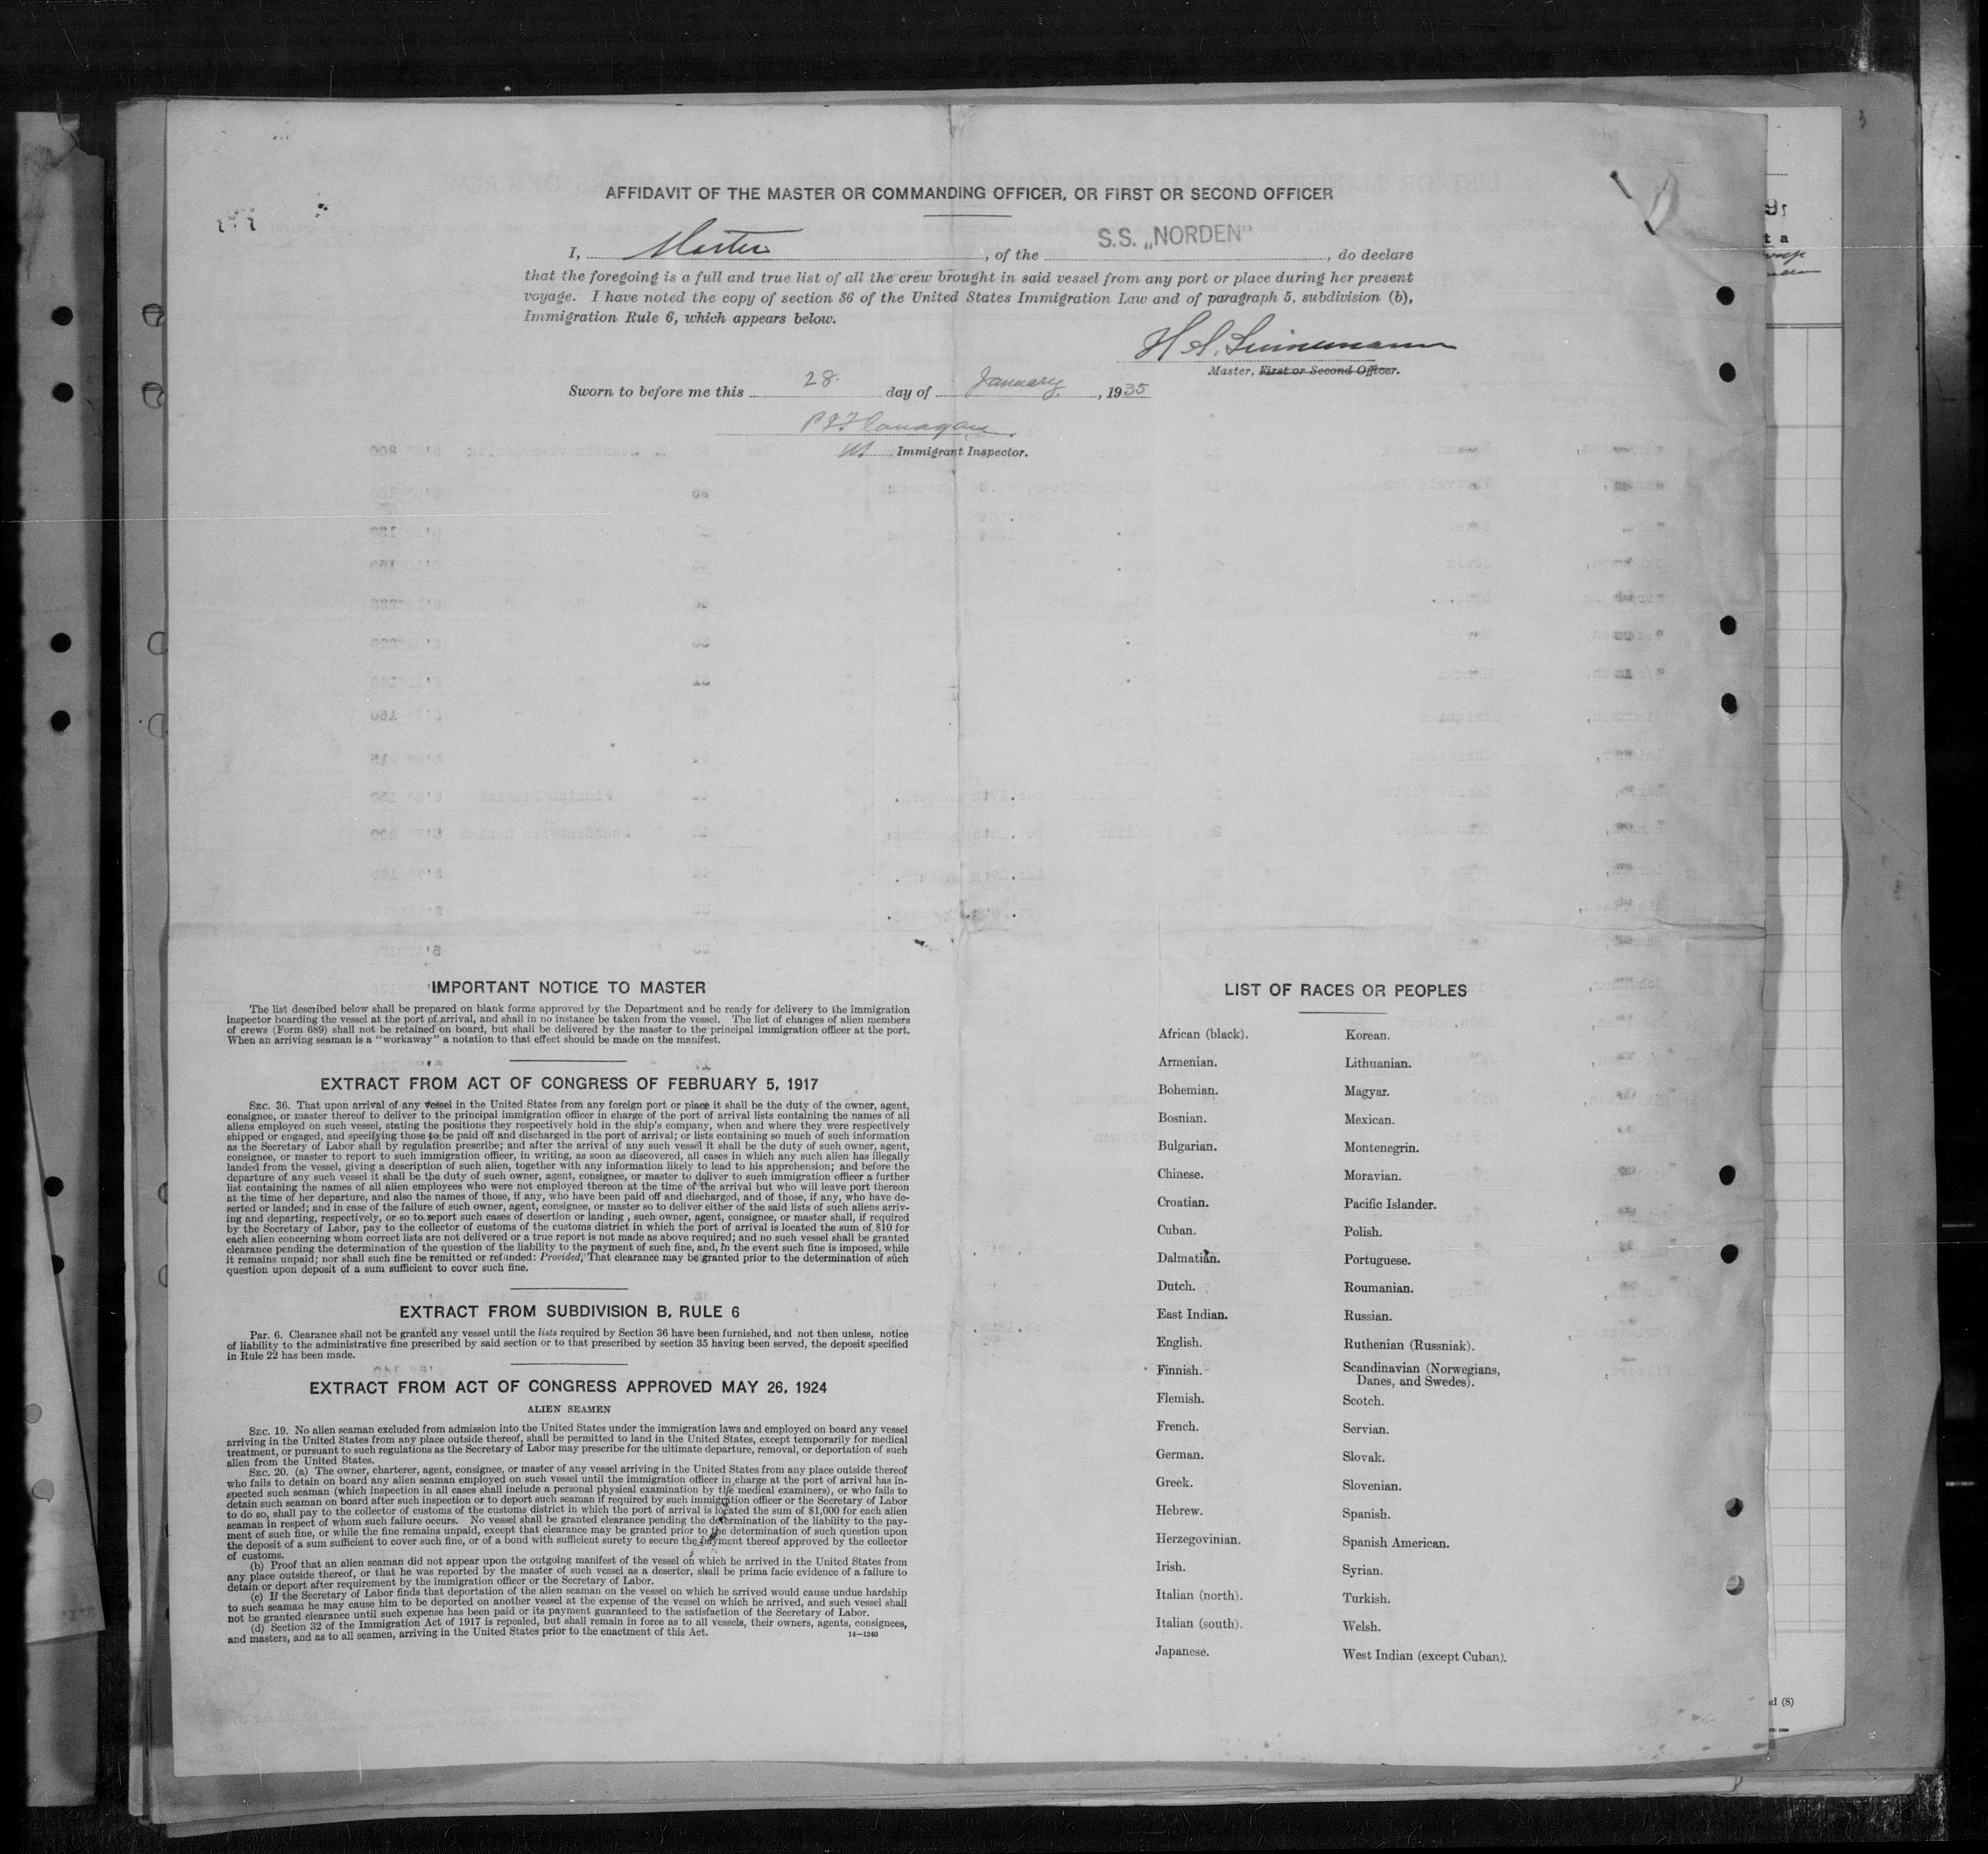 AFFIDAVIT OF THE MASTER OR COMMANDING OFFICER, OR FIRST OR SECOND OFFICER
I, Master, of the S.S. „NORDEN", do declare
that the foregoing is a full and true list of all the crew brought in said vessel from any port or place during her present
voyage. I have noted the copy of section 36 of the United States Immigration Law and of paragraph 5, subdivision (b),
Immigration Rule 6, which appears below.
Master, First or Second Officer.
Sworn to before me this 28. day of January, 1935
Immigrant Inspector.
IMPORTANT NOTICE TO MASTER
The list described below shall be prepared on blank forms approved by the Department and be ready for delivery to the immigration
inspector boarding the vessel at the port of arrival, and shall in no instance be taken from the vessel. The list of changes of alien members
of crews (Form 689) shall not be retained on board, but shall be delivered by the master to the principal immigration officer at the port.
When an arriving seaman is a "workaway" a notation to that effect should be made on the manifest.
EXTRACT FROM ACT OF CONGRESS OF FEBRUARY 5, 1917
SEC. 36. That upon arrival of any vessel in the United States from any foreign port or place it shall be the duty of the owner, agent,
consignee, or master thereof to deliver to the principal immigration officer in charge of the port of arrival lists containing the names of all
aliens employed on such vessel, stating the positions they respectively hold in the ship's company, when and where they were respectively
shipped or engaged, and specifying those to be paid off and discharged in the port of arrival; or lists containing so much of such information
as the Secretary of Labor shall by regulation prescribe; and after the arrival of any such vessel it shall be the duty of such owner, agent,
consignee, or master to report to such immigration officer, in writing, as soon as discovered, all cases in which any such alien has illegally
landed from the vessel, giving a description of such alien, together with any information likely to lead to his apprehension; and before the
departure of any such vessel it shall be the duty of such owner, agent, consignee, or master to deliver to such immigration officer a further
list containing the names of all alien employees who were not employed thereon at the time of the arrival but who will leave port thereon
at the time of her departure, and also the names of those, if any, who have been paid off and discharged, and of those, if any, who have de-
serted or landed; and in case of the failure of such owner, agent, consignee, or master so to deliver either of the said lists of such aliens arriv-
ing and departing, respectively, or so to report such cases of desertion or landing , such owner, agent, consignee, or master shall, if required
by the Secretary of Labor, pay to the collector of customs of the customs district in which the port of arrival is located the sum of $10 for
each alien concerning whom correct lists are not delivered or a true report is not made as above required; and no such vessel shall be granted
clearance pending the determination of the question of the liability to the payment of such fine, and, in the event such fine is imposed, while
it remains unpaid; nor shall such fine be remitted or refunded: Provided, That clearance may be granted prior to the determination of such
question upon deposit of a sum sufficient to cover such fine.
EXTRACT FROM SUBDIVISION B, RULE 6
Par. 6. Clearance shall not be granted any vessel until the lists required by Section 36 have been furnished, and not then unless, notice
of liability to the administrative fine prescribed by said section or to that prescribed by section 35 having been served, the deposit specified
in Rule 22 has been made.
EXTRACT FROM ACT OF CONGRESS APPROVED MAY 26, 1924
ALIEN SEAMEN
SEC. 19. No alien seaman excluded from admission into the United States under the immigration laws and employed on board any vessel
arriving in the United States from any place outside thereof, shall be permitted to land in the United States, except temporarily for medical
treatment, or pursuant to such regulations as the Secretary of Labor may prescribe for the ultimate departure, removal, or deportation of such
alien from the United States.
SEC. 20. (a) The owner, charterer, agent, consignee, or master of any vessel arriving in the United States from any place outside thereof
who fails to detain on board any alien seaman employed on such vessel until the immigration officer in charge at the port of arrival has in-
spected such seaman (which inspection in all cases shall include a personal physical examination by the medical examiners), or who fails to
detain such seaman on board after such inspection or to deport such seaman if required by such immigration officer or the Secretary of Labor
to do so, shall pay to the collector of customs of the customs district in which the port of arrival is located the sum of $1,000 for each alien
seaman in respect of whom such failure occurs. No vessel shall be granted clearance pending the determination of the liability to the pay-
ment of such fine, or while the fine remains unpaid, except that clearance may be granted prior to the determination of such question upon
the deposit of a sum sufficient to cover such fine, or of a bond with sufficient surety to secure the payment thereof approved by the collector
of customs.
(b) Proof that an alien seaman did not appear upon the outgoing manifest of the vessel on which he arrived in the United States from
any place outside thereof, or that he was reported by the master of such vessel as a deserter, shall be prima facie evidence of a failure to
detain or deport after requirement by the immigration officer or the Secretary of Labor.
(c) If the Secretary of Labor finds that deportation of the alien seaman on the vessel on which he arrived would cause undue hardship
to such seaman he may cause him to be deported on another vessel at the expense of the vessel on which he arrived, and such vessel shall
not be granted clearance until such expense has been paid or its payment guaranteed to the satisfaction of the Secretary of Labor.
(d) Section 32 of the Immigration Act of 1917 is repealed, but shall remain in force as to all vessels, their owners, agents, consignees,
and masters, and as to all seamen, arriving in the United States prior to the enactment of this Act.
14—1240
LIST OF RACES OR PEOPLES
African (black).
Armenian.
Bohemian.
Bosnian.
Bulgarian.
Chinese.
Croatian.
Cuban.
Dalmatian.
Dutch.
East Indian.
English.
Finnish.
Flemish.
French.
German.
Greek.
Hebrew.
Herzegovinian.
Irish.
Italian (north).
Italian (south).
Japanese.
Korean.
Lithuanian.
Magyar.
Mexican.
Montenegrin.
Moravian.
Pacific Islander.
Polish.
Portuguese.
Roumanian.
Russian.
Ruthenian (Russniak).
Scandinavian (Norwegians,
Danes, and Swedes).
Scotch.
Servian.
Slovak.
Slovenian.
Spanish.
Spanish American.
Syrian.
Turkish.
Welsh.
West Indian (except Cuban).